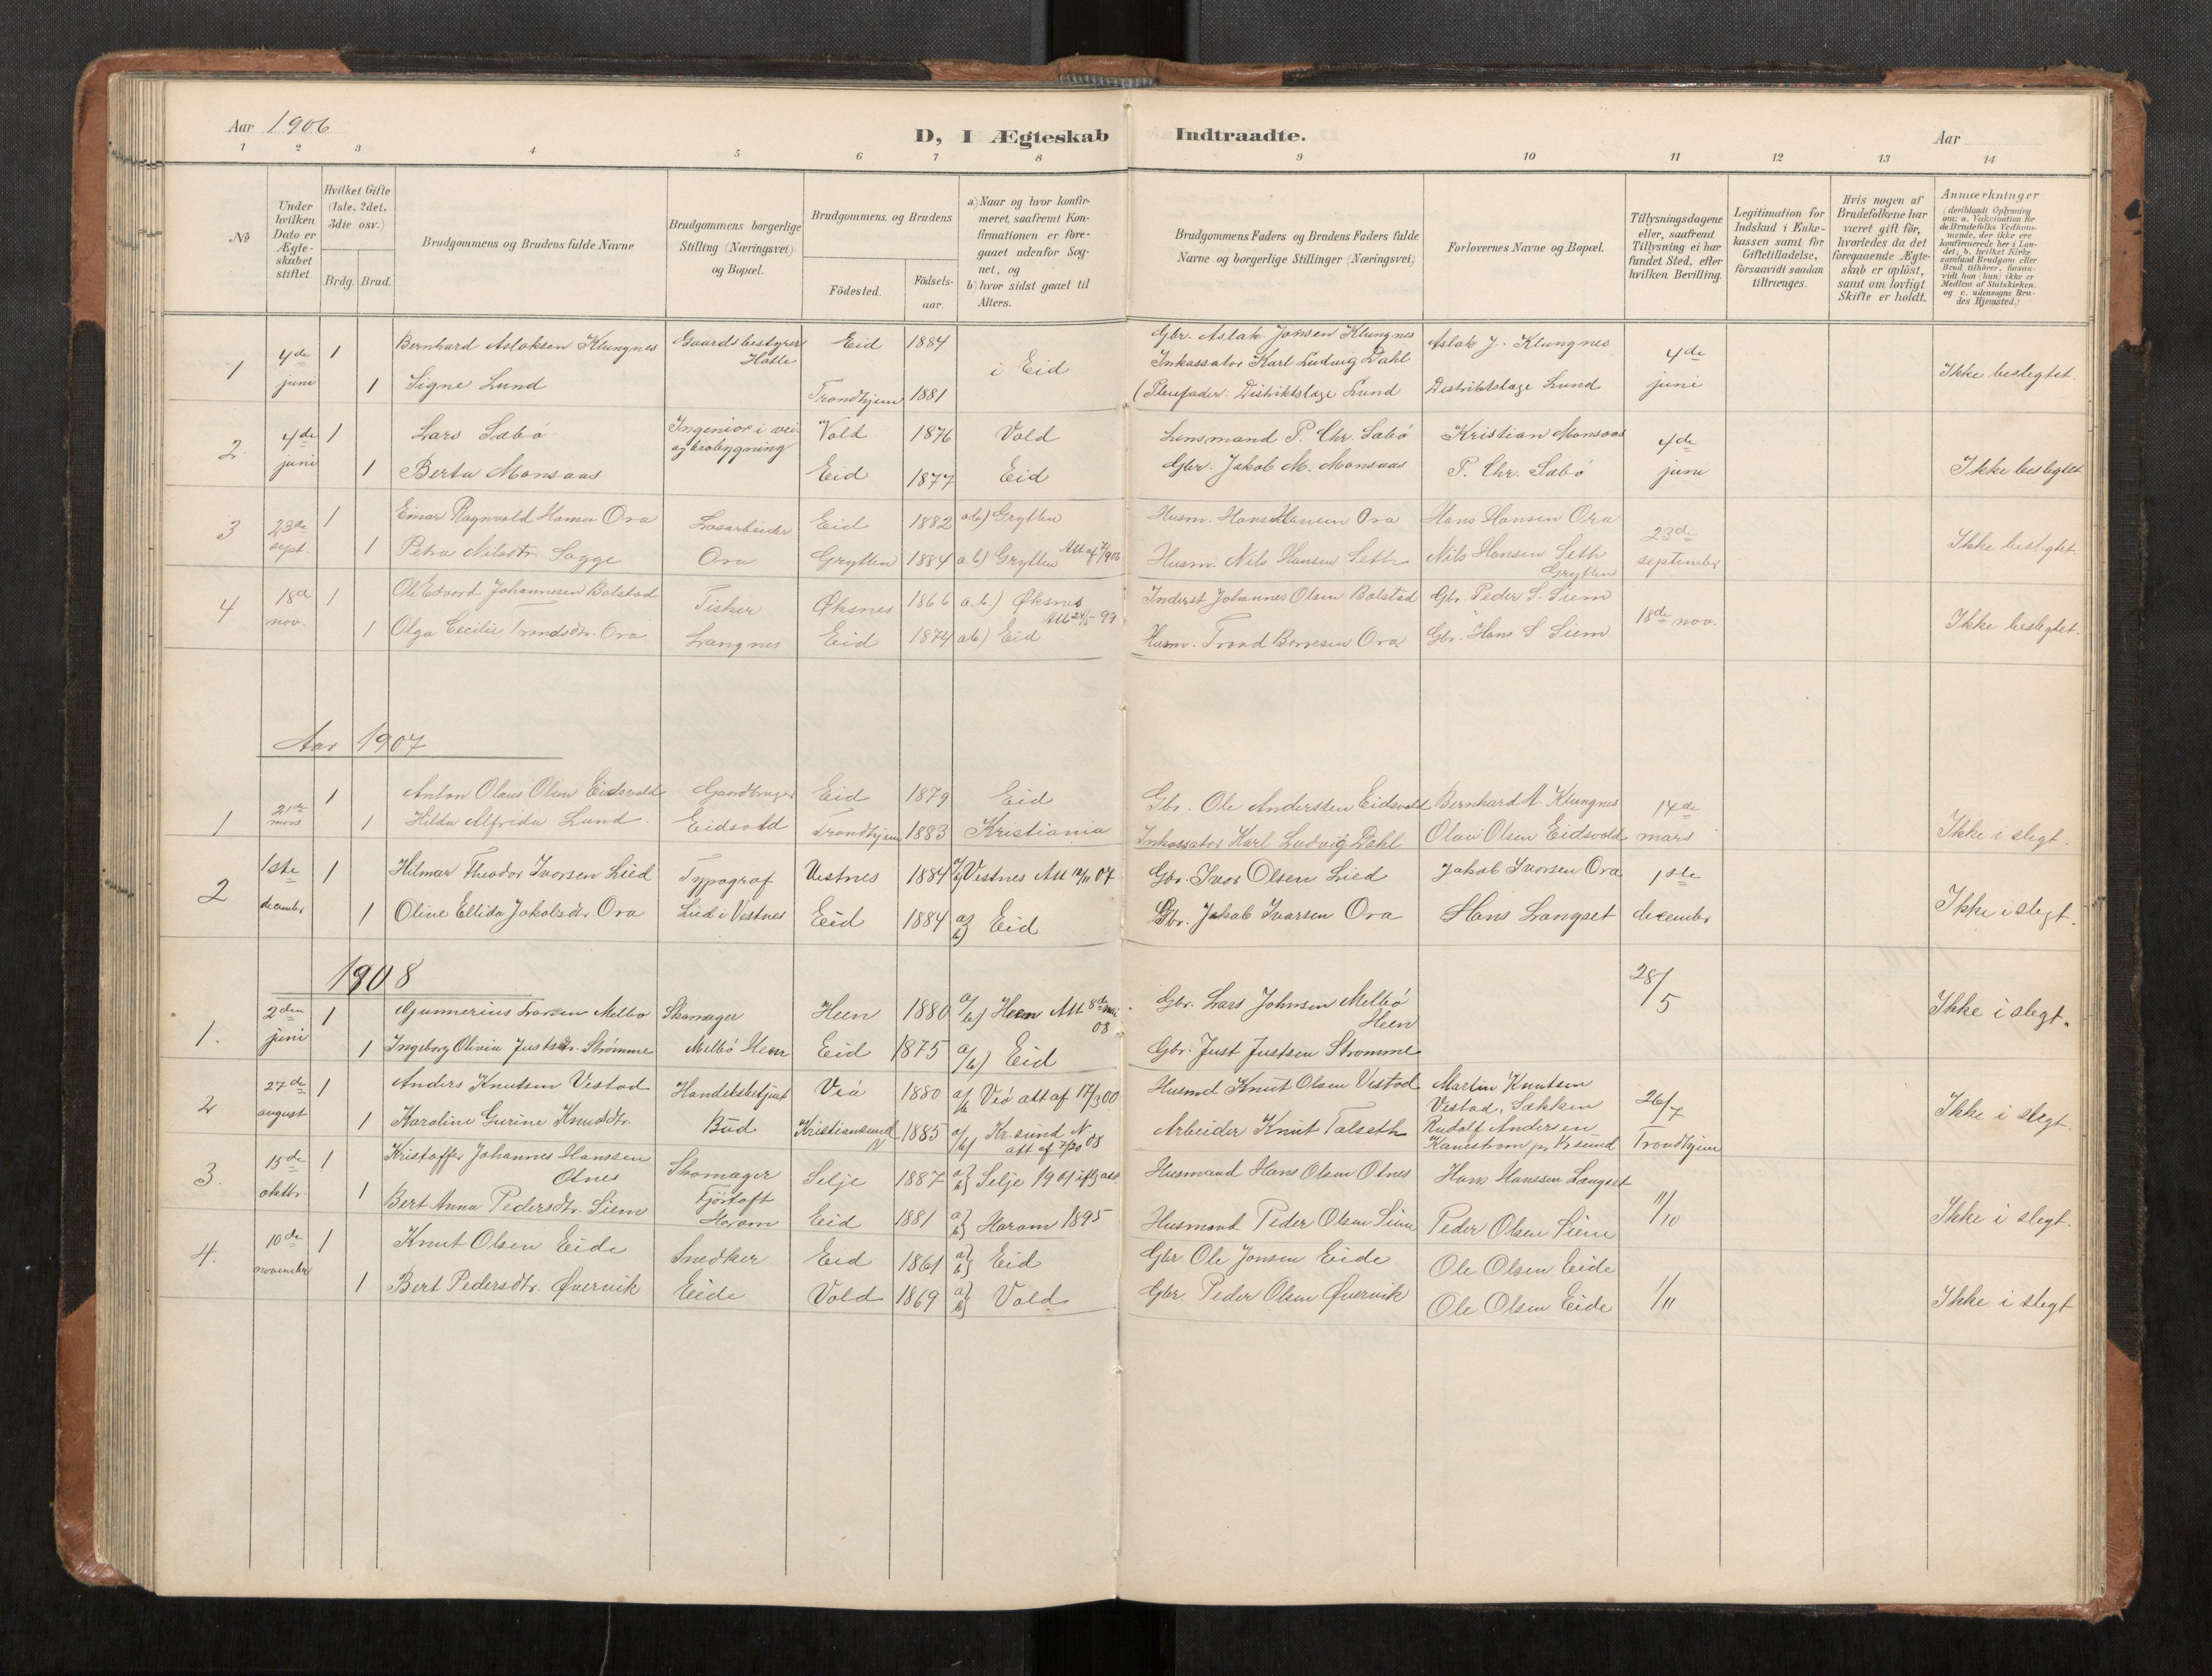 Aar 1906
D, I Ægteskab Indtraadte.
Aar
1 2 3 4 5 6 7 8 9 10 11 12 13 14
No
Under hvilken Dato er Ægteskabet stiftet.
Hvilket Gifte (1ste, 2det, 3die osv.)
Brdg. Brud.
Brudgommens og Brudens fulde Navne
Brudgommens borgerlige Stilling (Næringsvei) og Bopæl.
Brudgommens og Brudens
Födested.
Födselsaar.
a) Naar og hvor konfirmeret, saafremt Konfirmationen er foregaaet udenfor Sognet, og
b) hvor sidst gaaet til Alters.
Brudgommens Faders og Brudens Faders fulde Navne og borgerlige Stillinger (Næringsvei)
Forlovernes Navne og Bopæl.
Tillysningsdagene eller, saafremt Tillysning ei har fundet Sted, efter hvilken Bevilling.
Legitimation for Indskud i Enkekassen samt for Giftetilladelse, forsaavidt saadan tiltrænges.
Hvis nogen af Brudefolkene har været gift för, hvorledes da det foregaaende Ægteskab er oplöst, samt om lovligt Skifte er holdt.
Anmærkninger
(deriblandt Oplysning om: a. Vakcination for de Brudefolks Vedkommende, der ikke ere konfirmerede her i Landet; b. hvilket Kirkesamfund Brudgom eller Brud tilhörer, forsaavidt han (hun) ikke er Medlem af Statskirken. og c. udensogns Brudes Hjemsted.)
1 4de juni 1 Bernhard Aslaksen Klungnes Gaardsbestyrer Eid 1884 i Eid Gbr. Aslak Jonsen Klungnes Aslak J. Klungnes 4de juni Ikke beslegtet.
Inkassator Karl Ludvig Dahl
1 Signe Lund Trondhjem 1881 (Pleiefader: Distriktslæge Lund Distriktslæge Lund
2 4de juni 1 Lars Sæbö Ingeniör i vei og Vold 1876 Vold Lensmand P. Chr. Sæbö Kristian Monsaas 4de juni Ikke beslegtet
1 Berta Monsaas Eid 1877 Eid Gbr. Jakob M. Monsaas P. Chr. Sæbö
3 23de sept. 1 Einar Ragnvald Hansen Ora Løsarbeider Eid 1882 a.b) Grytten Husm. Hans Hansen Ora Hans Hansen Ora 23de september Ikke beslegtet
1 Petra Nilsdtr. Sogge Ora Grytten 1884 a.b) Grytten Att af 7/9 06 Husm. Nils Hansen Seth Nils Hansen Seth Grytten
4 18de nov. 1 Ole Edvard Johannesen Bolstad Fisker Øksnes 1866 a.b.) Øksnes Att 24/5 99 Inderst Johannes Olsen Bolstad Gbr. Peder S. Siem 18de nov. Ikke beslegtet.
1 Olga Cecilie Trondsdtr. Ora Langnes Eid 1874 a b) Eid Husm. Trond Børresen Ora Gbr. Hans S Siem
Aar 1907
1 21de mars 1 Anton Olaus Olsen Eidsvold Gardbruger Eid 1879 Eid Gbr. Ole Andersten Eidsvold Bernhard A. Klungnes 14de mars Ikke i slegt.
1 Hilda Alfrida Lund Eidsvold Trondhjem 1883 Kristiania Inkassator Karl Ludvig Dahl Olav Olsen Eidsvold
2 1ste december 1 Hilmar Theodor Ivorsen Lied Typograf Vestnes 1884 a/b) Vestnes Att 12/11 07 Gbr. Ivor Olsen Lied Jakob Ivorsen Ora 1ste december Ikke i slegt.
1 Oline Ellida Jakobsdtr. Ora Lied i Vestnes Eid 1884 a) b) Eid Gbr. Jakob Ivarsen Ora Hans Langset
1908
1. 2den juni 1 Gunnerius Larsen Melbö Skomager Heen 1880 a/b) Heen Att 8de mai 08 Gbr. Lars Johnsen Melbö Heen 28/5 Ikke i slegt.
1 Ingeborg Olivia Justsdtr. Strømme Melbö Heen Eid 1875 a/b) Eid Gbr. Just Justsen Strømme
2 27de august 1 Anders Knutsen Vestad Handelsbetjent Veö 1880 a/b Veö att af 17/3 00 Husmd Knut Olsen Vestad Martin Knutsen Vestad, Sækken 26/7 Trondhjem Ikke i slegt.
1 Karoline Gurine Knudsdtr. Bud Kristiansund N 1885 a/b) Kr.sund N att af 7/20 08 Arbeider Knut Talseth Rudolf Andersen Kanestrøm pr Kr sund
3. 15de oktbr. 1 Kristoffer Johannes Hanssen Otnes Skomager Selje 1887 a} b} Selje 1901 Husmand Hans Olsen Otnes Hans Hanssen Langset 11/10 Ikke i slegt.
1 Bert Anna Pedersdtr. Siem Fjörtoft Haram Eid 1881 a} b} Haram 1895 Husmand Peder Olsen Siem Peder Olsen Siem
4. 10de november 1 Knut Olsen Eide Snedker Eid 1861 a} b} Eid Gbr. Ole Jonsen Eide Ole Olsen Eide 1/11 Ikke i slegt
1 Bert Pedersdtr. Øvervik Eide Vold 1869 a} b} Vold Gbr. Peder Olsen Øvervik Ole Olsen Eide